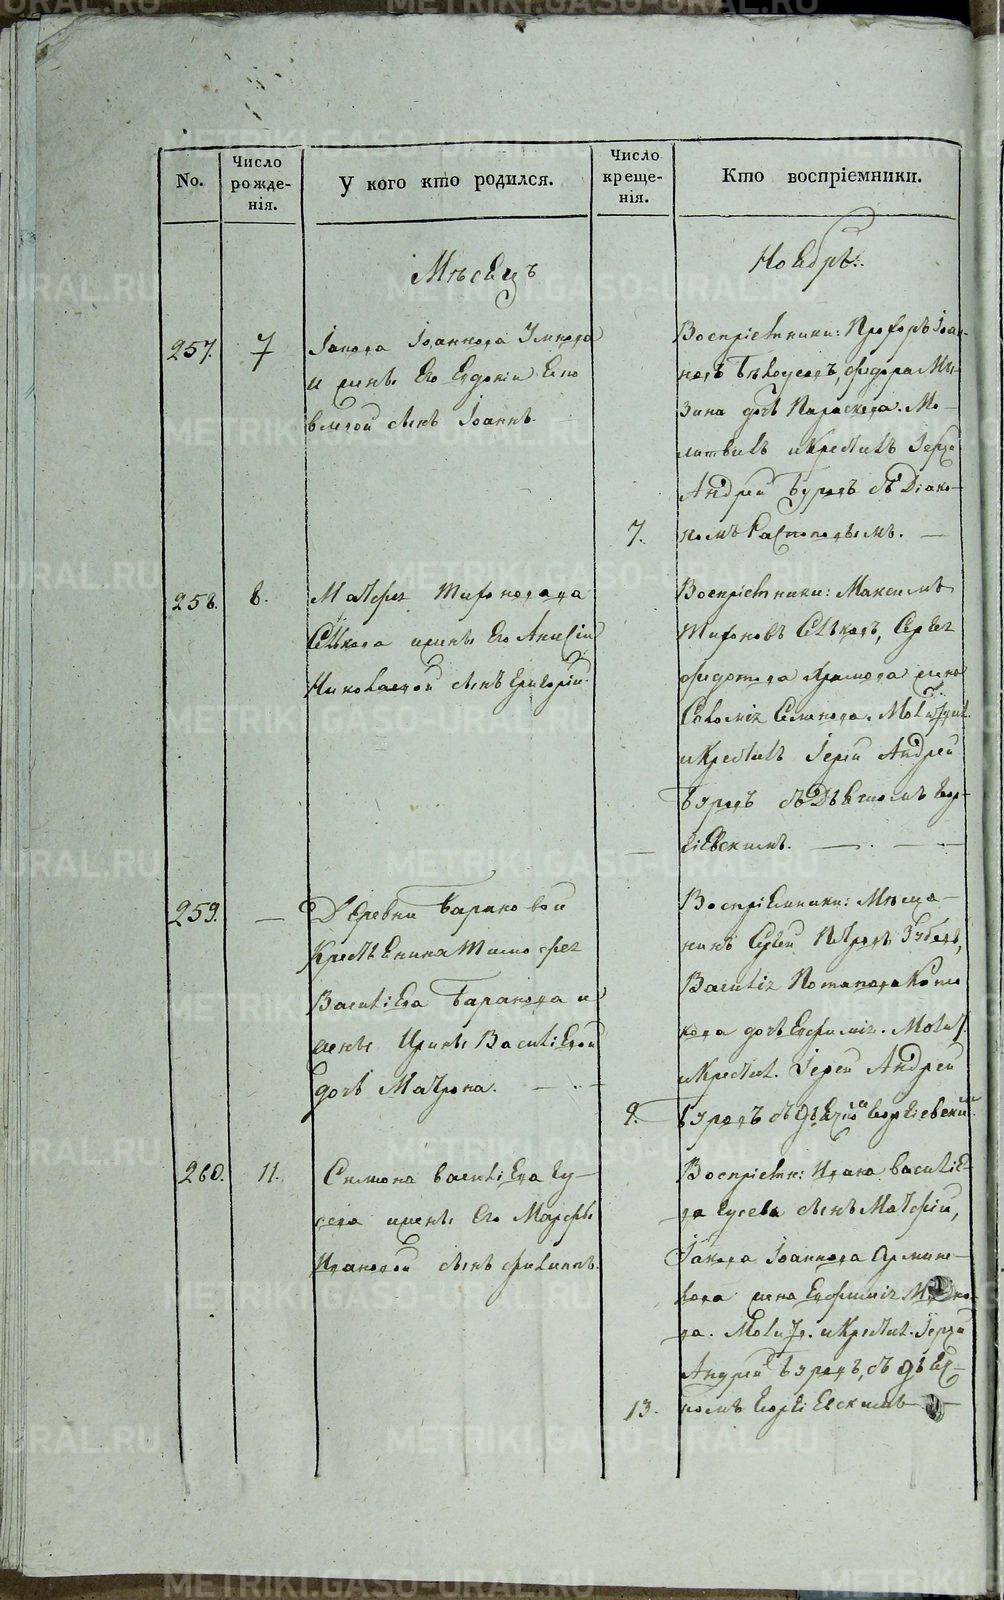 METRIKI.GASO-URAL.RU
No.
Число рожде-нія.
У кого кто родился.
Число креще-нія.
Кто воспріемники.
Мѣсецъ
Ноебрѣ.
257.
7
Іакова Іоаннова
и жены Его Евдокіи
сынъ Іоаннъ.
7.
Воспріемники: Прохоръ Іоан-
новъ Ѳедора Мы-
зина дочь Параскева. Мо-
литвилъ и Крестилъ Іерей
Андрей Буровъ съ Діако-
номъ Распоповымъ. —
258.
8.
Матфея Тифонова
и жены Его Анисіи
Николаевой сынъ Григорій.
—
Воспріемники: Максимъ
Тифоновъ Сергея
Федотова жена
Соломія Семенова.
и Крестилъ Іерей Андрей
Буровъ съ Дьячкомъ Геор-
гіевскимъ. —
259.
—
Деревни Барановой
Крестьенина Тимофея
Василіева Баранова и
жены Ирины Василіевой
дочь Матрона. —
9.
Воспріемники: Мѣща-
нинъ Петровъ Зубовъ,
Василія Потапова
дочь Евфимія.
и Крестил. Іерей Андрей
Буровъ съ Георгіевский
260.
11.
Симеона Василіева Гу-
сева и жены Его Марфы
Ивановой сынъ Филиппъ.
13.
Воспріемн: Ивана Василіе-
ва Гусева сынъ Матфій,
Іакова Іоаннова
жена Евфимія
ва. и Крестил. Іерей
Андрей Буровъ, съ дьяч-
комъ Георгіевскимъ